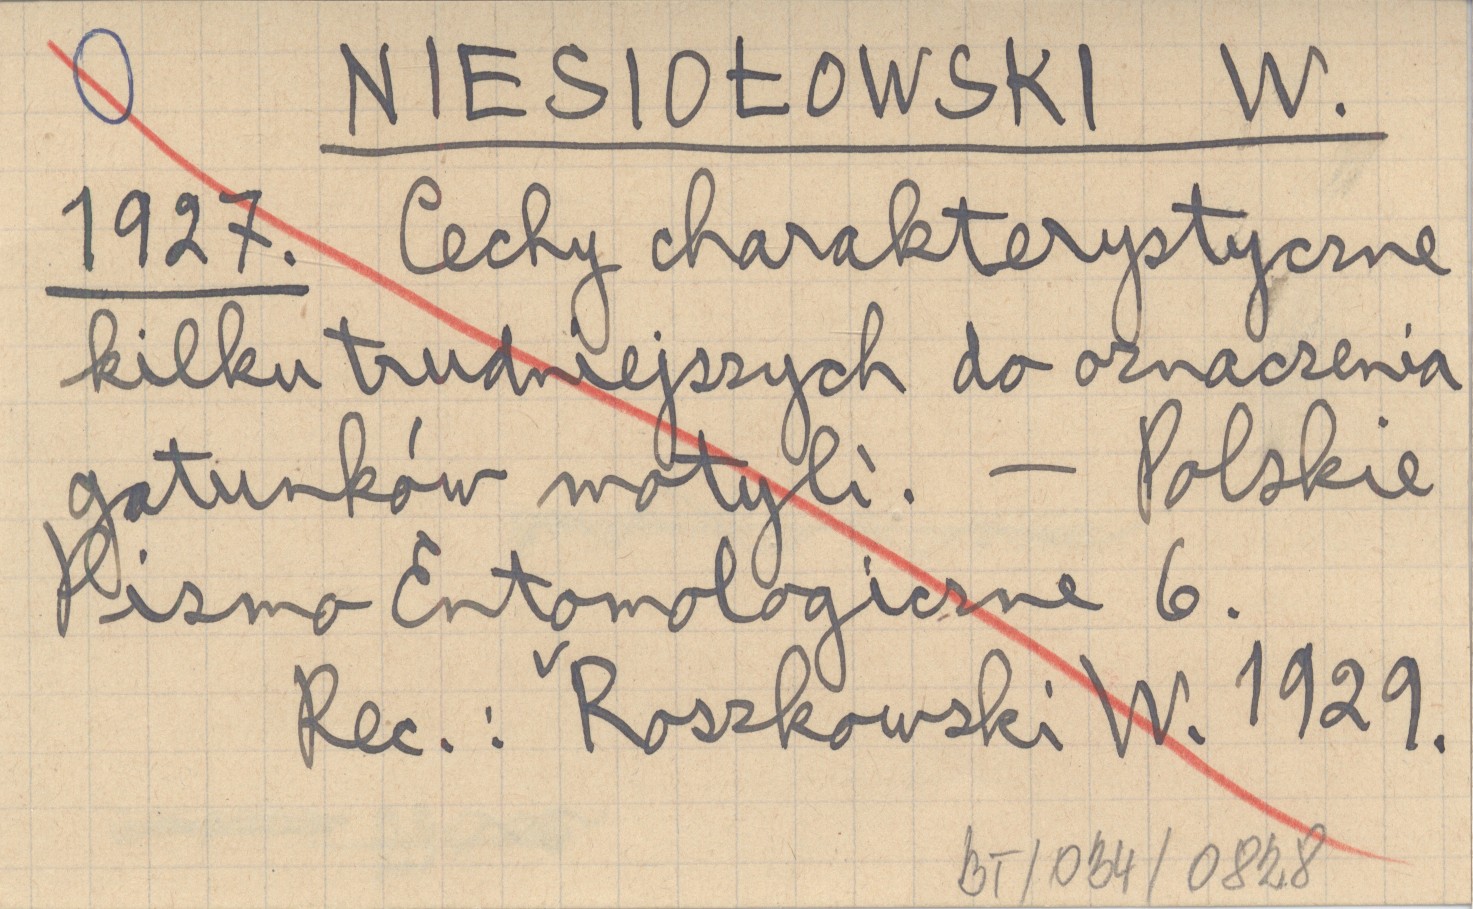 NIESIOŁOWSKI W.
1927. Cechy charakterystyczne
kilku trudniejszych do oznaczenia
gatunków motyli. — Polskie
Pismo Entomologiczne 6.
Rec.: Roszkowski W. 1929.
BT/034/0828